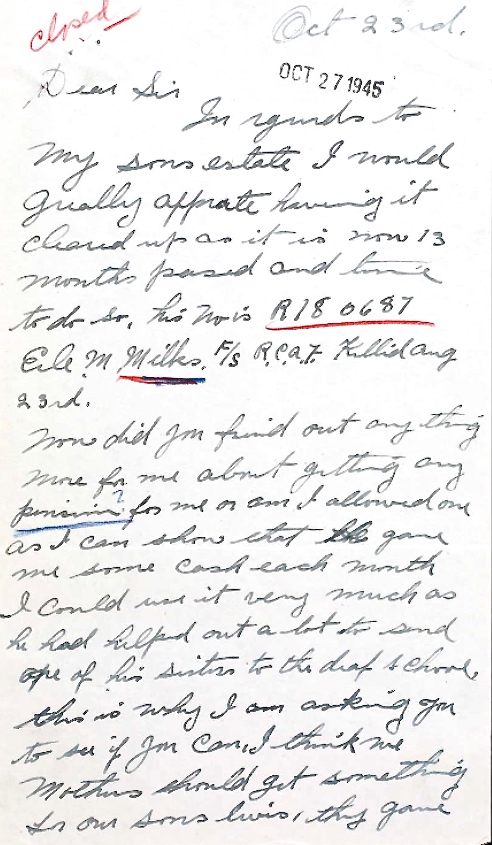 closed
Oct 23rd.
OCT 27 1945
Dear Sir
In regurds to
My sons estate I would
greally apprate haveing it
cleared up as it is now 13
months passed and time
to do so, his No is R180687
M Milks. F/s R.C.A.F. Killid Aug
23rd.
Now did you find out any thing
more for me about getting any
pension? for me or am I allowed one
as I can show that he gave
me some cash each month
I could use it very much as
he had helped out a lot to send
one of his sisters to the deaf school,
this is why I am asking you
to see if you can, I think we
Mothers should get something
for our sons livis, they gave